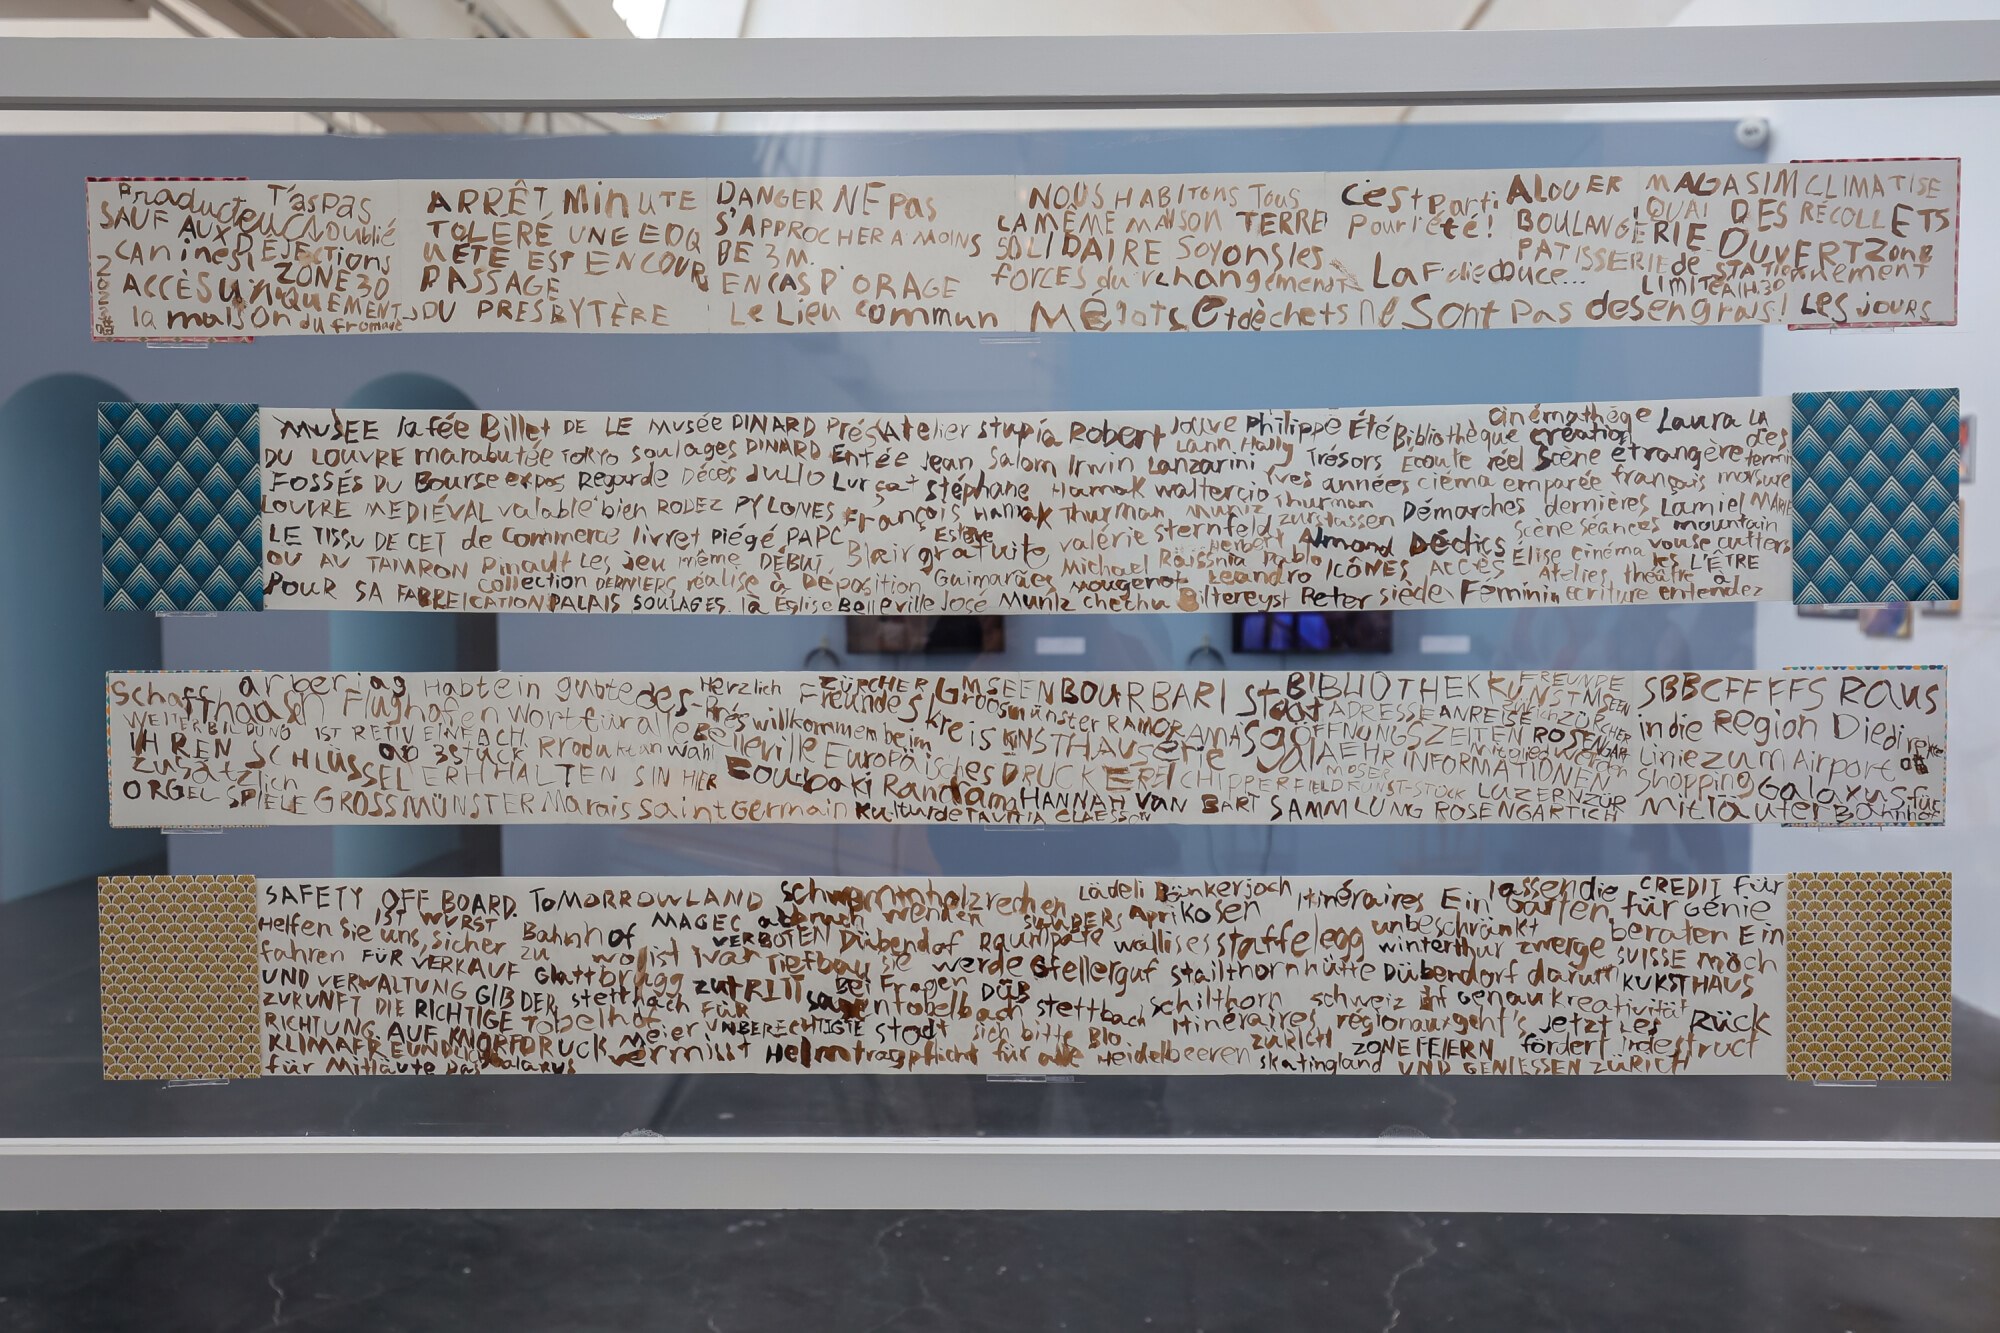 Producteur T'as pas ARRÊT MiNUTE DANGER NE Pas NOUS HABITONS Tous C'est Parti ALOUER MAGASIM CLIMATISE
SAUF AUX oublié TOLÉRÉ UNE S'APPROCHER A MOINS LA MÊME MAISON TERRE Pour l'été! BOULANGERIE QUAI DES RÉCOLLETS
CANiNES DÉJECTIONS ÉTÉ EST ENCOUR DE 3 M. SOLIDAIRE Soyons les PATISSERIE OUVERT Zone
ACCÈS UNiQUEMENT ZONE 30 PASSAGE EN CAS D'ORAGE forces du changement La douce... de STATIONNEMENT LIMITE
la maison du fromage DU PRESBYTÈRE Le Lieu Commun Mégots Et déchets Ne Sont Pas des engrais! LES jours
MUSEE la fée Billet DE LE Musée DINARD Prés Atelier stupia Robert Jouve Philippe Été Bibliothèque création cinémathège Laura LA
DU LOUVRE marabutée TOKYO soulages DINARD Entée Jean Salom Irwin Lanzarini Trésors Écoute réel Scène étrangère des
FOSSÉS DU Bourse expos Regarde Décès JULIO Lurçat stéphane Hamak waltercio Yves années ciema emparée français morsure
LOUVRE MEDIÉVAL valable bien RODEZ PYLONES François Hamak Thurman Muniz zurstassen Démarches dernières Lamiel MARIE
LE TISSU DE CET de Commerce livret Piégé PAPC Estève valérie sternfeld Armand Dédics Scène séances mountain
OU AU TAMRON Pinault Les jeu même DÉBUT Blair gratuite Michael Raissnia Pablo ICÔNES ACCÈS Élise cinéma les L'ÊTRE
POUR SA FABREICATION collection DERNIERS réalise à Déposition Guimarães Mougenot Leandro Atelies théâtre à
PALAIS SOULAGES. la Église Belleville José Muniz chechu Biltereyst Peter siècle Féminin ecriture entendez
Schaffhausen arberjag Habtein gubte des- Herzlich ZÜRCHER GMSEEN BOURBARI Stadt BIBLIOTHEK KUNSTMSEEN FREUNDE SBBCFFFFS Raus
WEITERBILDUNG Flughafen Wort für alle Prés willkommen beim Freundeskreis Groosmünster RAMORAMA ADRESSE ANREISE ZÜRCHER in die Region Die direkte
IHREN IST RETIV EINFACH ab 3 stück Produktanwahl Belleville Europäisches KNSTHAUS Galerie ÖFFNUNGSZEITEN ROSENGART Linie zum Airport
ZUSÄTZLICH SCHLÜSSEL ERHHALTEN SIN HIER Bourbaki Randam DRUCKEREI CHIPPERFIELD KUNST-STÜCK MEHR INFORMATIONEN LUZERN ZÜR Shopping Galaxus für
ORGELSPIELE GROSSMÜNSTER Marais Saint Germain Kulturde TAUNIA CLAESSON HANNAH VAN BART SAMMLUNG ROSENGARTICH Mitläufer Bahnhof
SAFETY OFF BOARD. TOMORROWLAND Schwemmholzrechen Lädeli Bänkerjoch Itinéraires Ein lassen die CREDIT für
Helfen Sie uns, IST WURST MAGEC abbruch wenden Aprikosen Garten, für Génie
fahren sicher zu Bahnhof VERBOTEN Dübendorf Raumpate wallises staffelegg unbeschränkt beraten Ein
FÜR VERKAUF wo ist ivan Tiefbau sie werde Gfellerguf stailthornhütte winterthur zwerge SUISSE möch
UND VERWALTUNG GIB DER Glattbrugg ZUTRITT Bei Fragen DÜB Dübendorf darum KUKSTHAUS
ZUKUNFT DIE RICHTIGE stettbach FÜR sagentobelbach stettbach schilthorn schweiz Genau kreativität
RICHTUNG AUF KNOPFDRUCK Tobelhof Meier UNBERECHTIGTE stadt sich bitte Itinéraires régionaux geht's jetzt Les Rück
KLIMAFREUNDLICH vermisst Helmtragpflicht für alle Heidelbeeren zürich ZONE FEIERN fördert indestruct
für Mitläute Das Galaxus skatingland UND GENIESSEN ZÜRICH